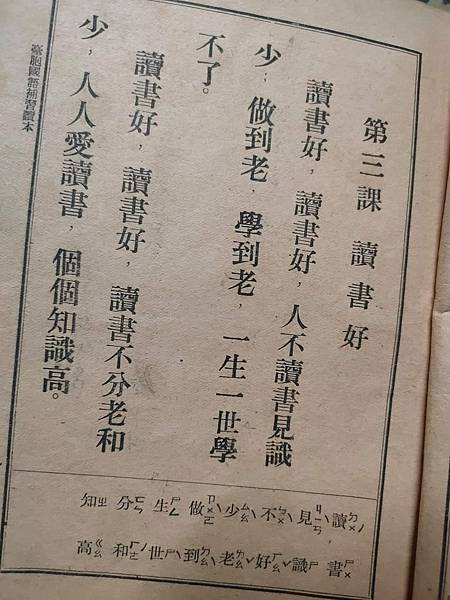 第三課 讀書好
讀書好，讀書好，人不讀書見識
少，做到老，學到老，一生一世學
不了。
讀書好，讀書好，讀書不分老和
少，人人愛讀書，個個知識高。
臺胞國語補習讀本
讀ㄉㄨˊ 書ㄕㄨ
見ㄐㄧㄢˋ 識ㄕ
不ㄅㄨˋ 好ㄏㄠˇ
少ㄕㄠˇ 老ㄌㄠˇ
做ㄗㄨㄛˋ 到ㄉㄠˋ
生ㄕㄥ 世ㄕˋ
分ㄈㄣ 和ㄏㄜˊ
知ㄓ 高ㄍㄠ